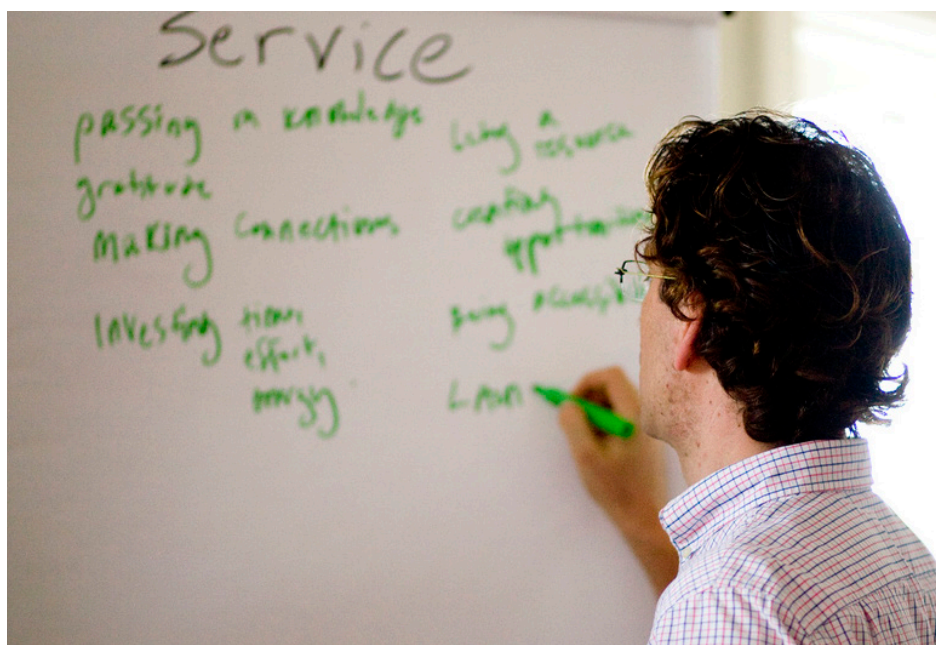 Service
passing on knowledge
gratitude
making connections
Investing time,
effort,
energy
being a
resource
creating
opportunities
being accessible
Learn